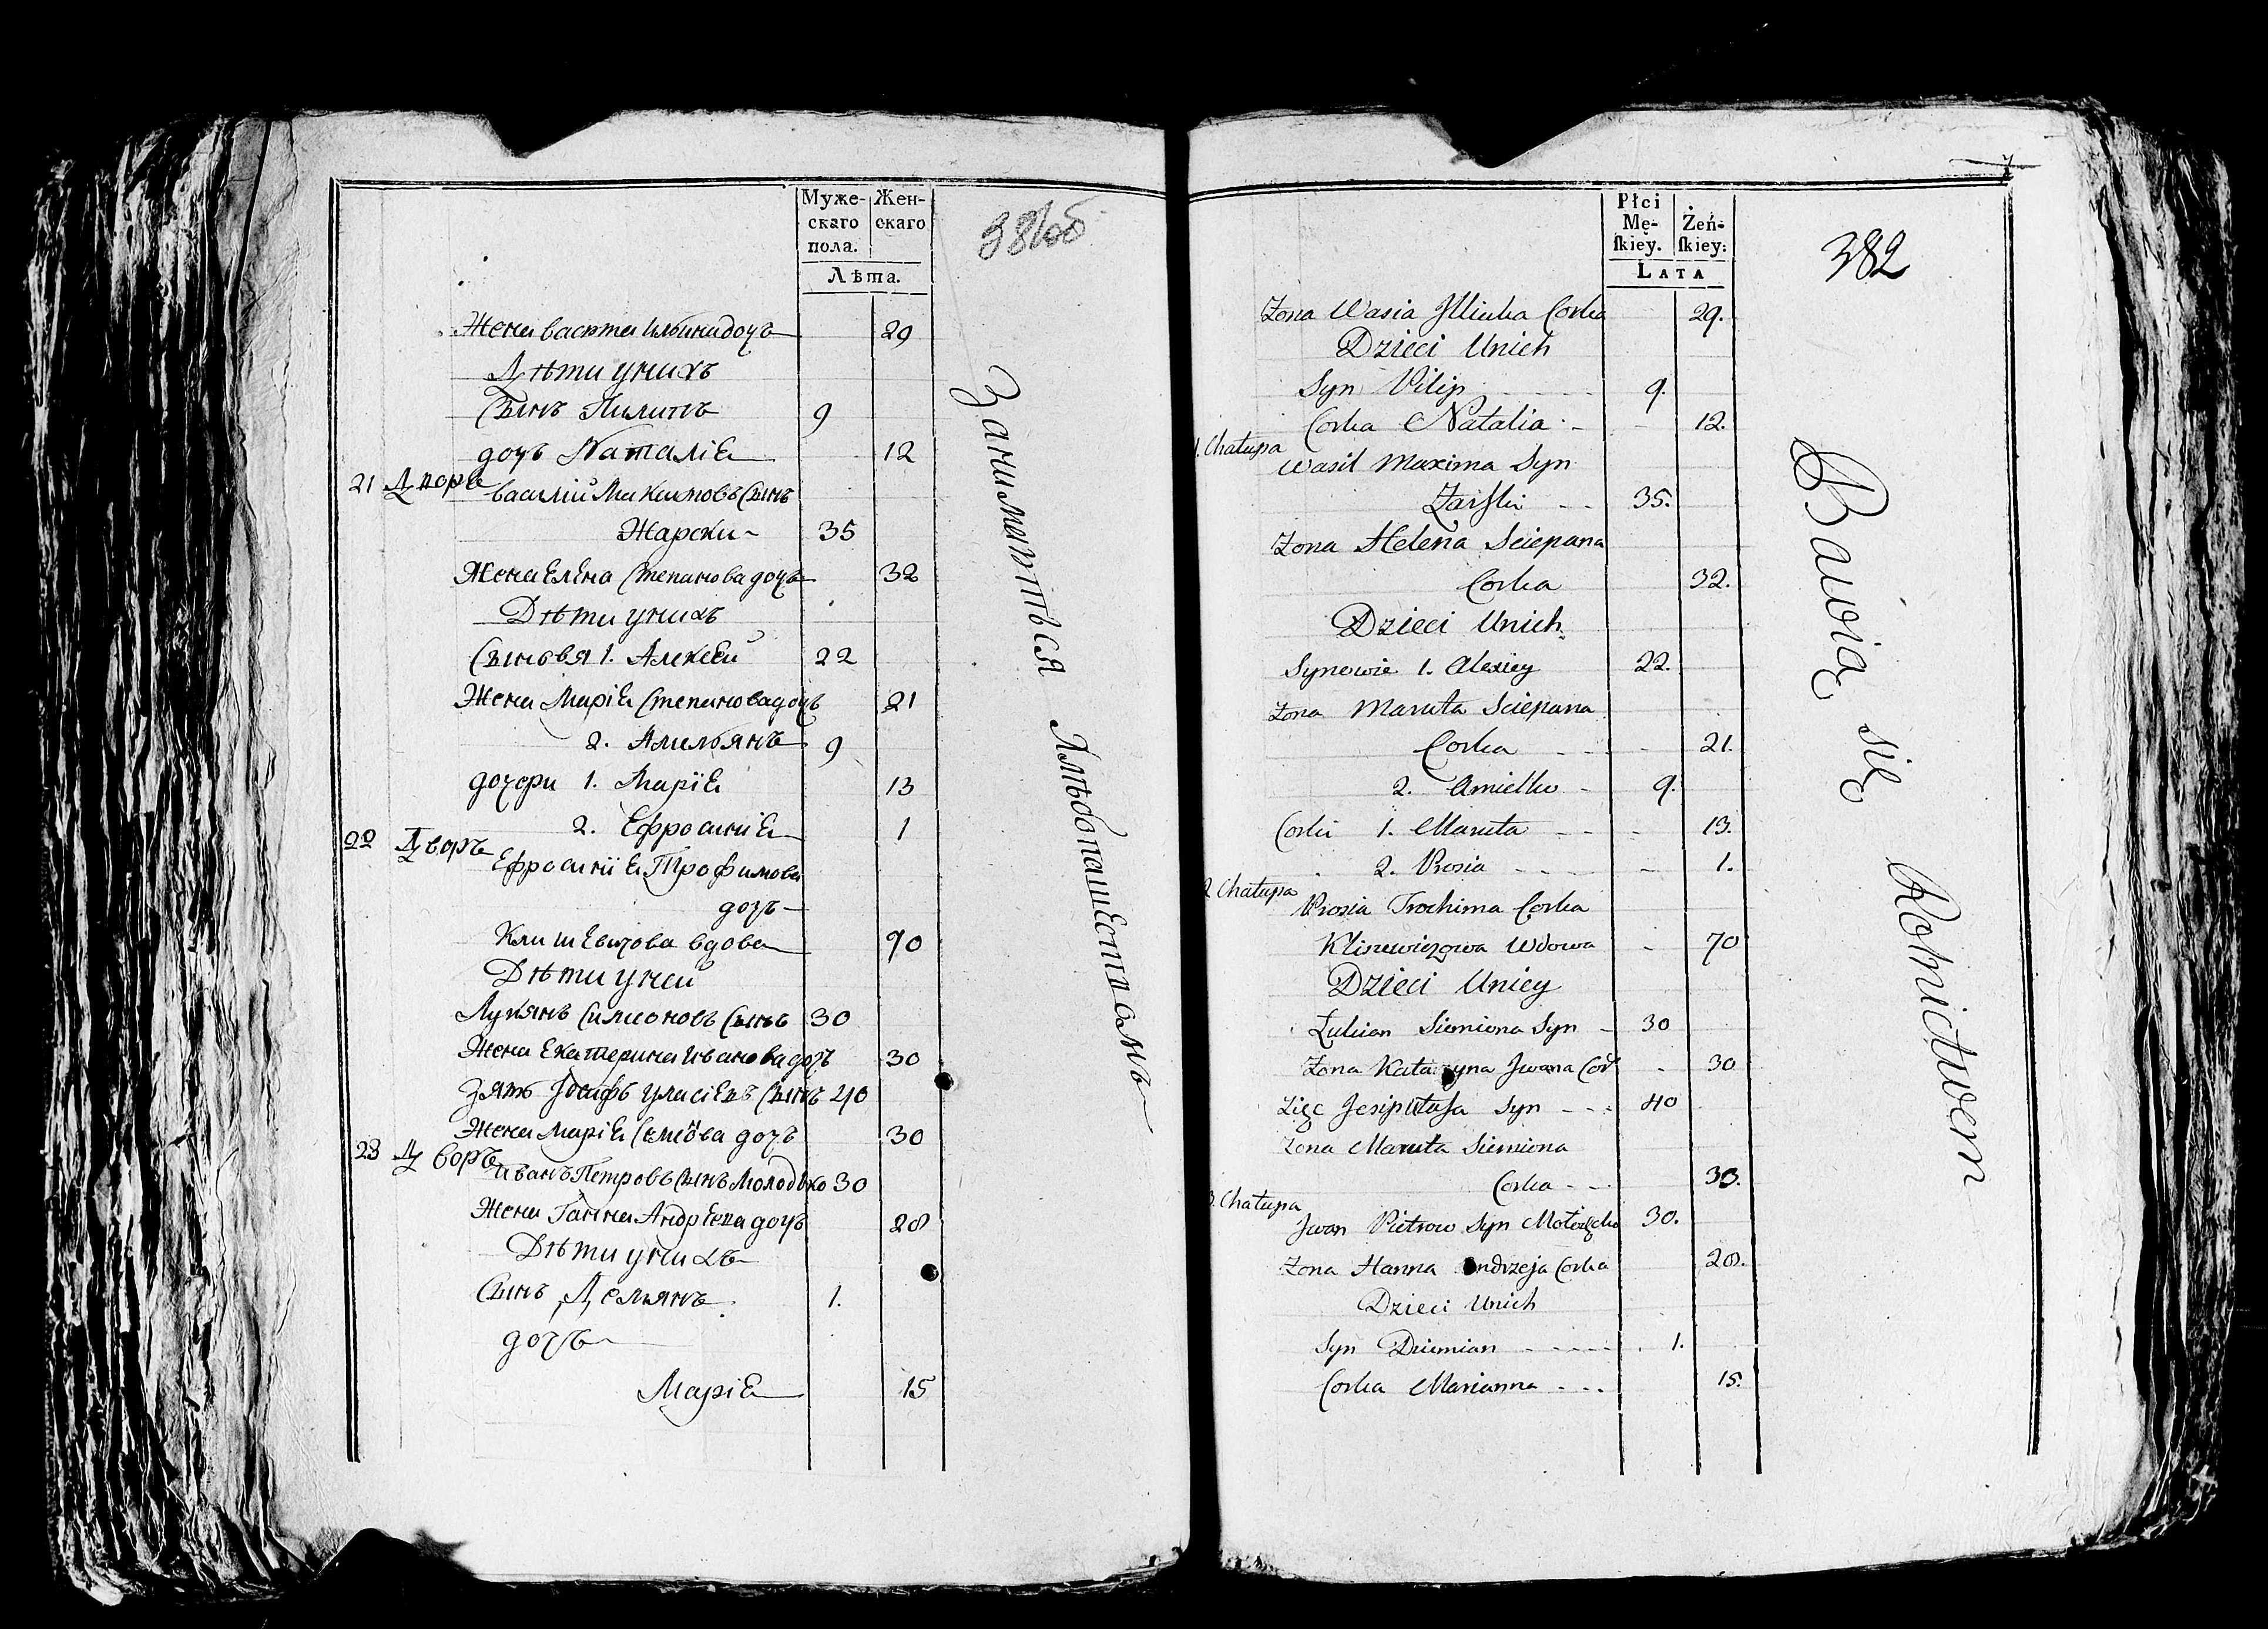 Муже-
скаго
пола.
Жен-
скаго
Лѣта.
381 об
Жена васта Ильина дочъ 29
Дѣти унихъ
Сынъ Пилипъ 9
дочъ Наталіа 12
21 Дворъ
василій Макимовъ Сынъ
Жарски 35
Жена Елена Степанова дочъ 32
Дѣти унихъ
Сыновя 1. Алексей 22
Жена Маріа Степанова дочъ 21
2. Амельянъ 9
дочери 1. Маріа 13
2. Ефросиніа 1
22 Дворъ
Ефросиніа Трофимова
дочъ
Клишевичова вдова 70
Дѣти уней
Лукянъ Симионовъ Сынъ 30
Жена Екатерина Иванова дочъ 30
Зять Іосифъ Уласіевъ Сынъ 40
Жена Маріа дочъ 30
23 Дворъ
иванъ Петровъ Сынъ Молодько 30
Жена Ганна Андреева дочъ 28
Дѣти унихъ
Сынъ Демянъ 1.
дочъ
Маріа 15
Занимаются Хлѣбопашествомъ
Płci
Mę-
ſkiey.
Żeń-
ſkiey:
LATA
382
Zona Wasia Illinka Corka 29.
Dzieci Unich
Syn Pilip 9.
Corka Natalia 12.
1. Chałupa
Wasil Maxima Syn
Zarſki 35.
Zona Helena Sciepana
Corka 32.
Dzieci Unich
Synowie 1. Alexiey 22.
Zona Maruta Sciepana
Corka 21.
2. Amielko 9.
Corki 1. Maruta 13.
2. Prosia 1.
2 Chałupa
Prosia Trochima Corka
Kliszewiczowa Wdowa 70
Dzieci Uniey
Łukian Siemiona Syn 30
Zona Katarzyna Jwana Cor 30
Zięc Jesip Ułaſa Syn 40
Zona Maruta Siemiona
Corka 30.
3. Chałupa
Jwan Pietrow Syn 30.
Zona Hanna Andrzeja Corka 28.
Dzieci Unich
Syn Dziemian 1.
Corka Marianna 15.
Bawią się Rolnictwem